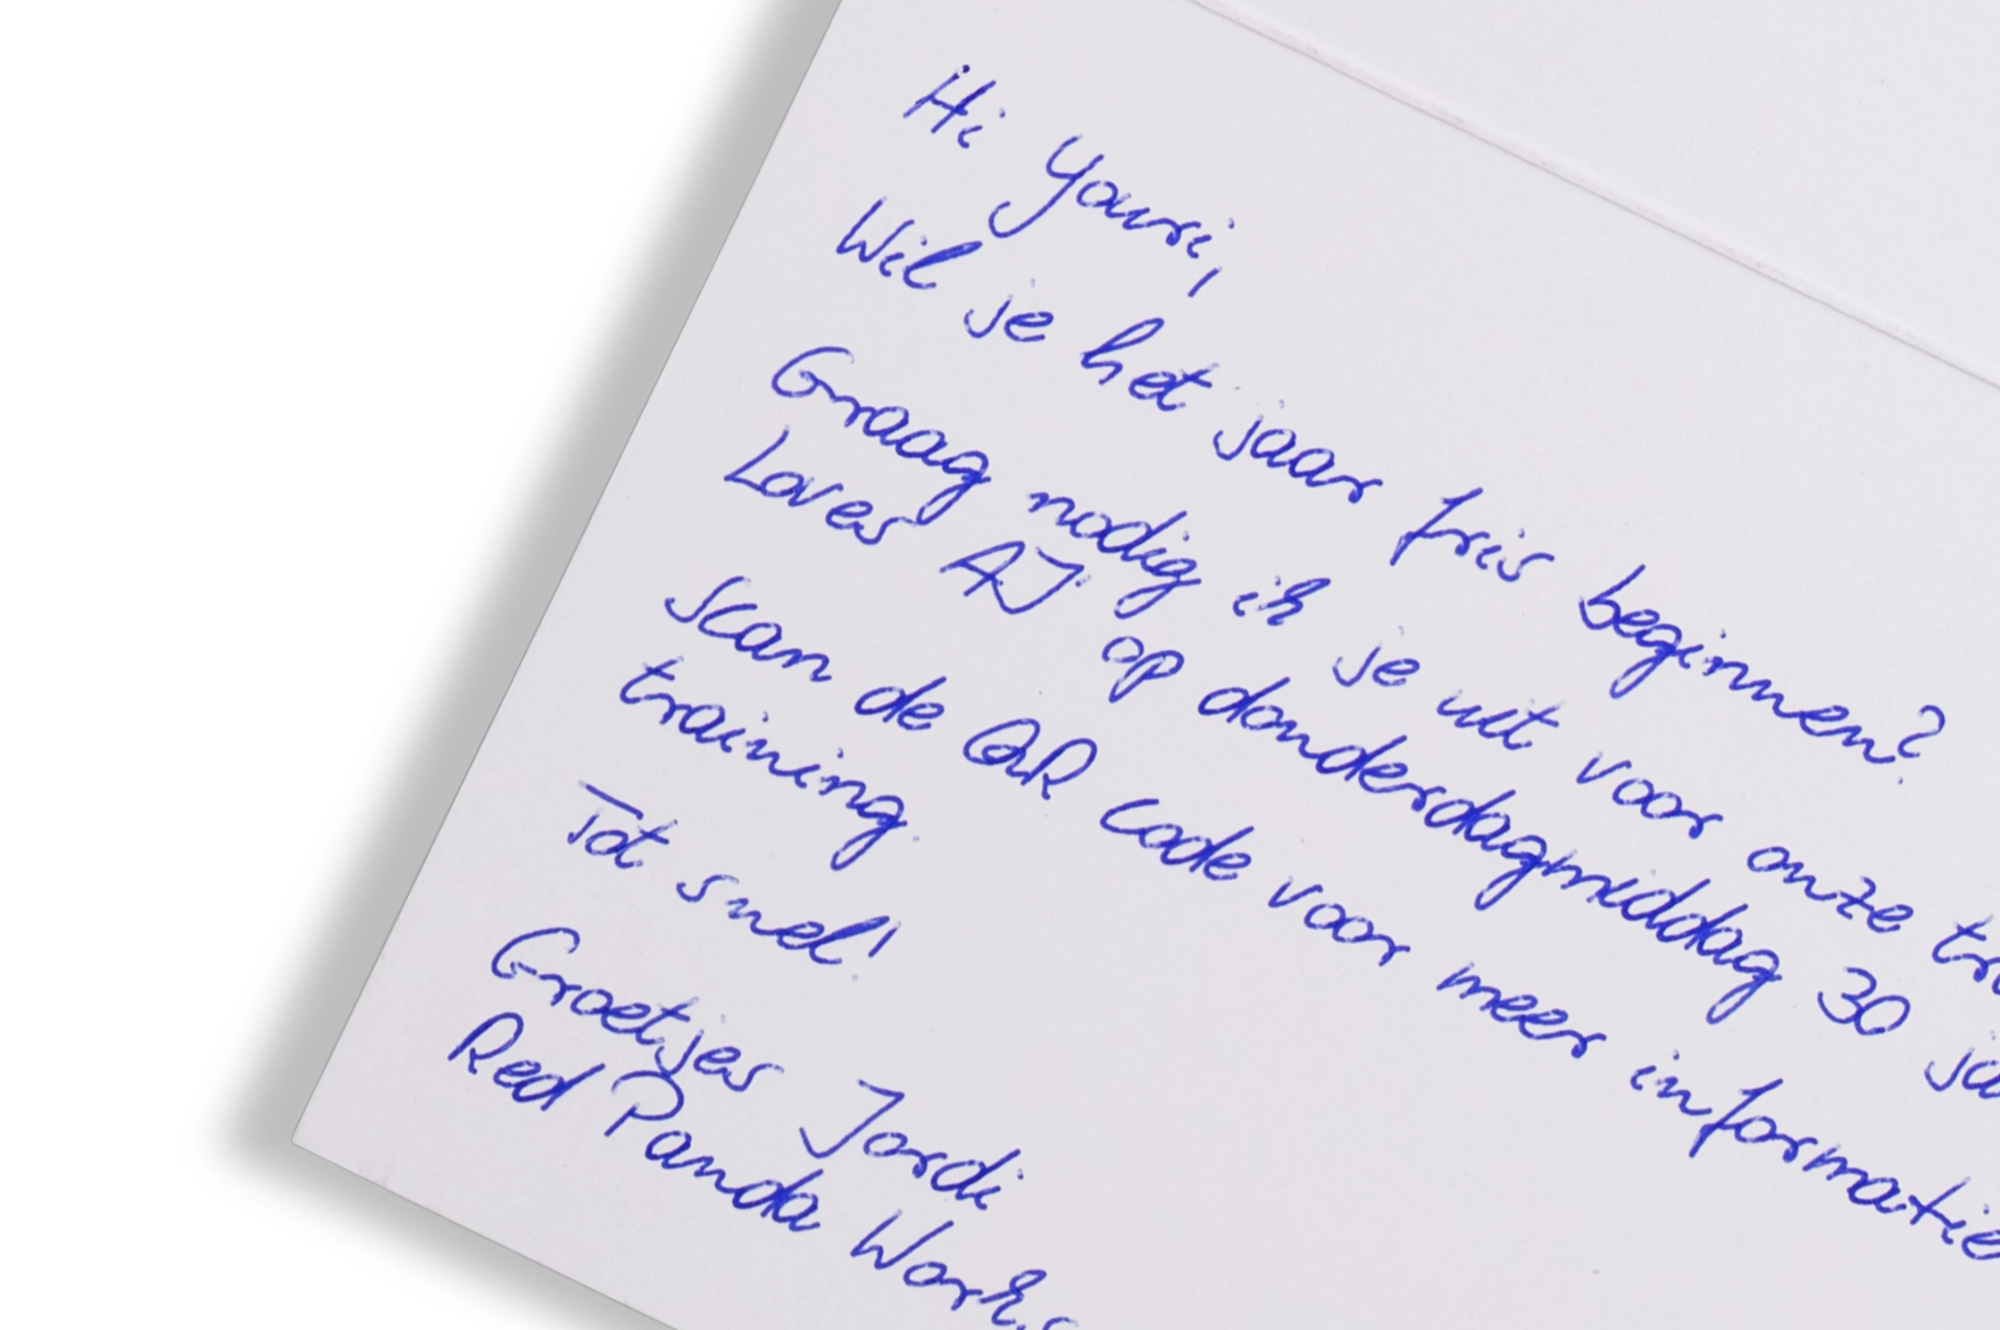 Hi Youri,
Wil je het jaar fris beginnen?
Graag nodig ik je uit voor onze
Loves AI op donderdagmiddag 30
Scan de QR code voor meer informatie
training.
Tot snel!
Groetjes Jordi
Red Panda Works